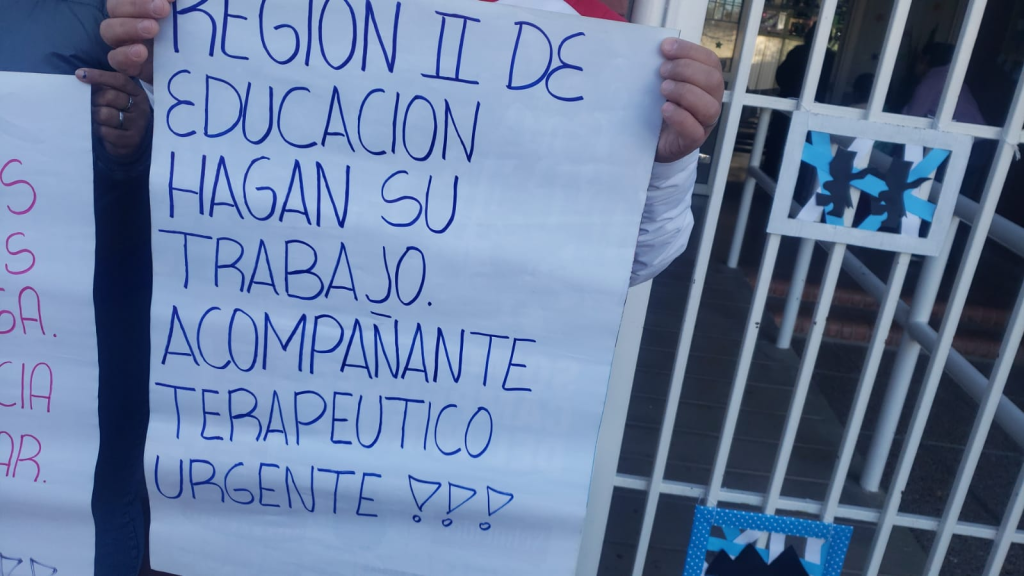 REGION II DE
EDUCACION
HAGAN SU
TRABAJO.
ACOMPAÑANTE
TERAPEUTICO
URGENTE !!!
S
S
GA.
CIA
AR.